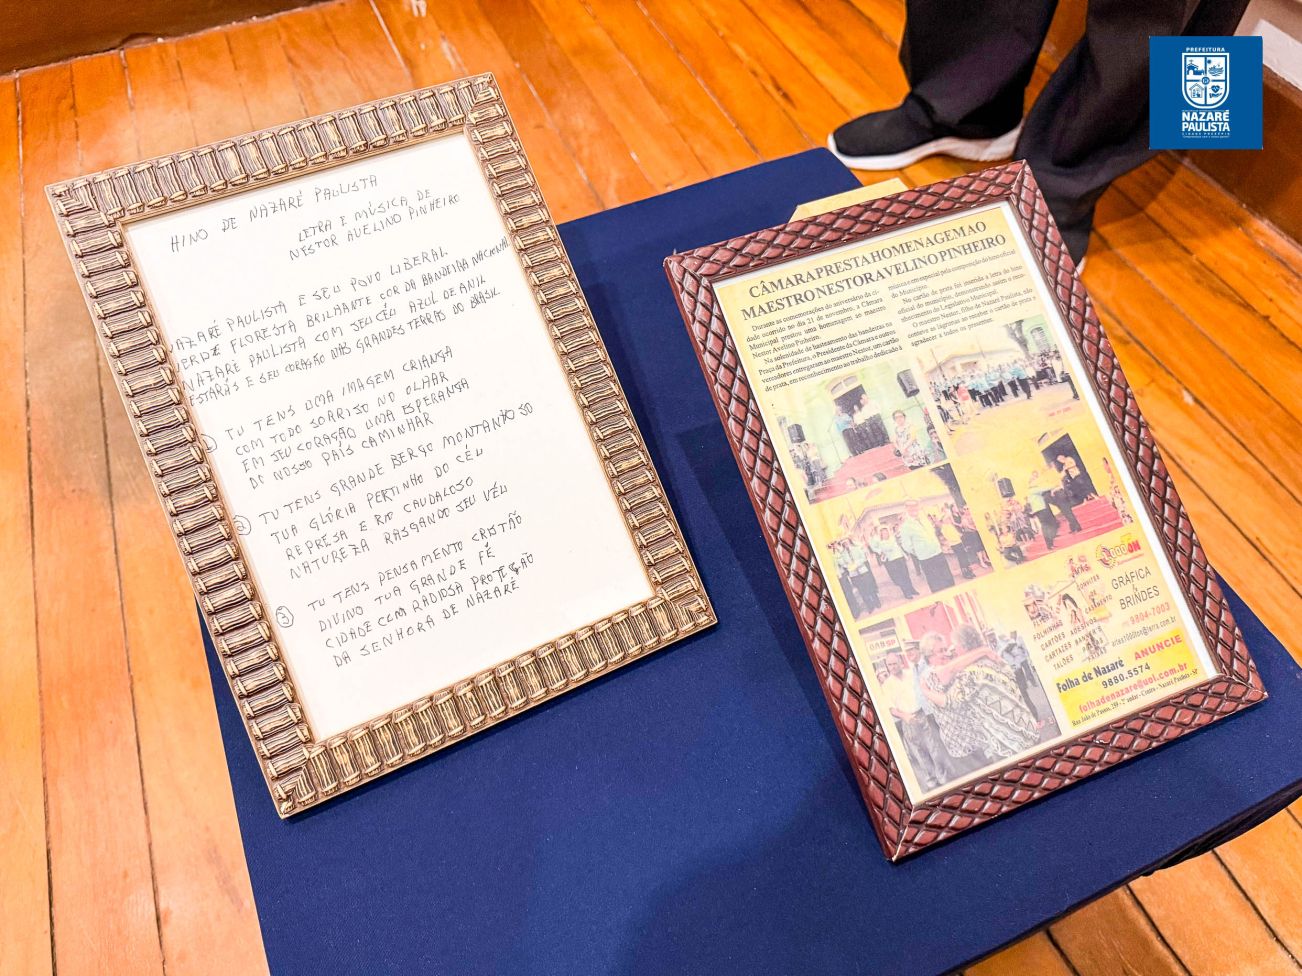 HINO DE NAZARÉ PAULISTA
LETRA E MÚSICA DE
NESTOR AVELINO PINHEIRO
NAZARÉ PAULISTA E SEU POVO LIBERAL
VERDE FLORESTA BRILHANTE COR DA BANDEIRA NACIONAL
NAZARÉ PAULISTA COM SEU CÉU AZUL DE ANIL
ESTARÁS E SEU CORAÇÃO NAS GRANDES TERRAS DO BRASIL
1 TU TENS UMA IMAGEM CRIANÇA
COM TODO SORRISO NO OLHAR
EM SEU CORAÇÃO UMA ESPERANÇA
DO NOSSO PAÍS CAMINHAR
2 TU TENS GRANDE BERÇO MONTANHOSO
TUA GLÓRIA PERTINHO DO CÉU
REPRESA E RIO CAUDALOSO
NATUREZA RASGANDO SEU VÉU
3 TU TENS PENSAMENTO CRISTÃO
DIVINO TUA GRANDE FÉ
CIDADE COM RADIOSA PROTEÇÃO
DA SENHORA DE NAZARÉ
CÂMARA PRESTA HOMENAGEM AO
MAESTRO NESTOR AVELINO PINHEIRO
Durante as comemorações do aniversário da ci-
dade ocorrido no dia 21 de novembro, a Câmara
Municipal prestou uma homenagem ao maestro
Nestor Avelino Pinheiro.
Na solenidade de hasteamento das bandeiras na
Praça da Prefeitura, o Presidente da Câmara e outros
vereadores entregaram ao maestro Nestor, um cartão
de prata, em reconhecimento ao trabalho dedicado à
música e em especial pela composição do hino oficial
do Município.
No cartão de prata foi inserida a letra do hino
oficial do município, demonstrando assim o reco-
nhecimento do Legislativo Municipal.
O maestro Nestor, filho de Nazaré Paulista, não
conteve as lágrimas ao receber o cartão de prata e
agradecer a todos os presentes.
GRÁFICA
e
BRINDES
CONVITES
DE
CASAMENTO
FOLHINHAS
CARTÕES ADESIVOS
CARTAZES BANNER'S
TALÕES
9804-7003
ANUNCIE
Folha de Nazaré
9880.5574
folhadenazare@uol.com.br
PREFEITURA
NAZARÉ
PAULISTA
CIDADE PRESÉPIO